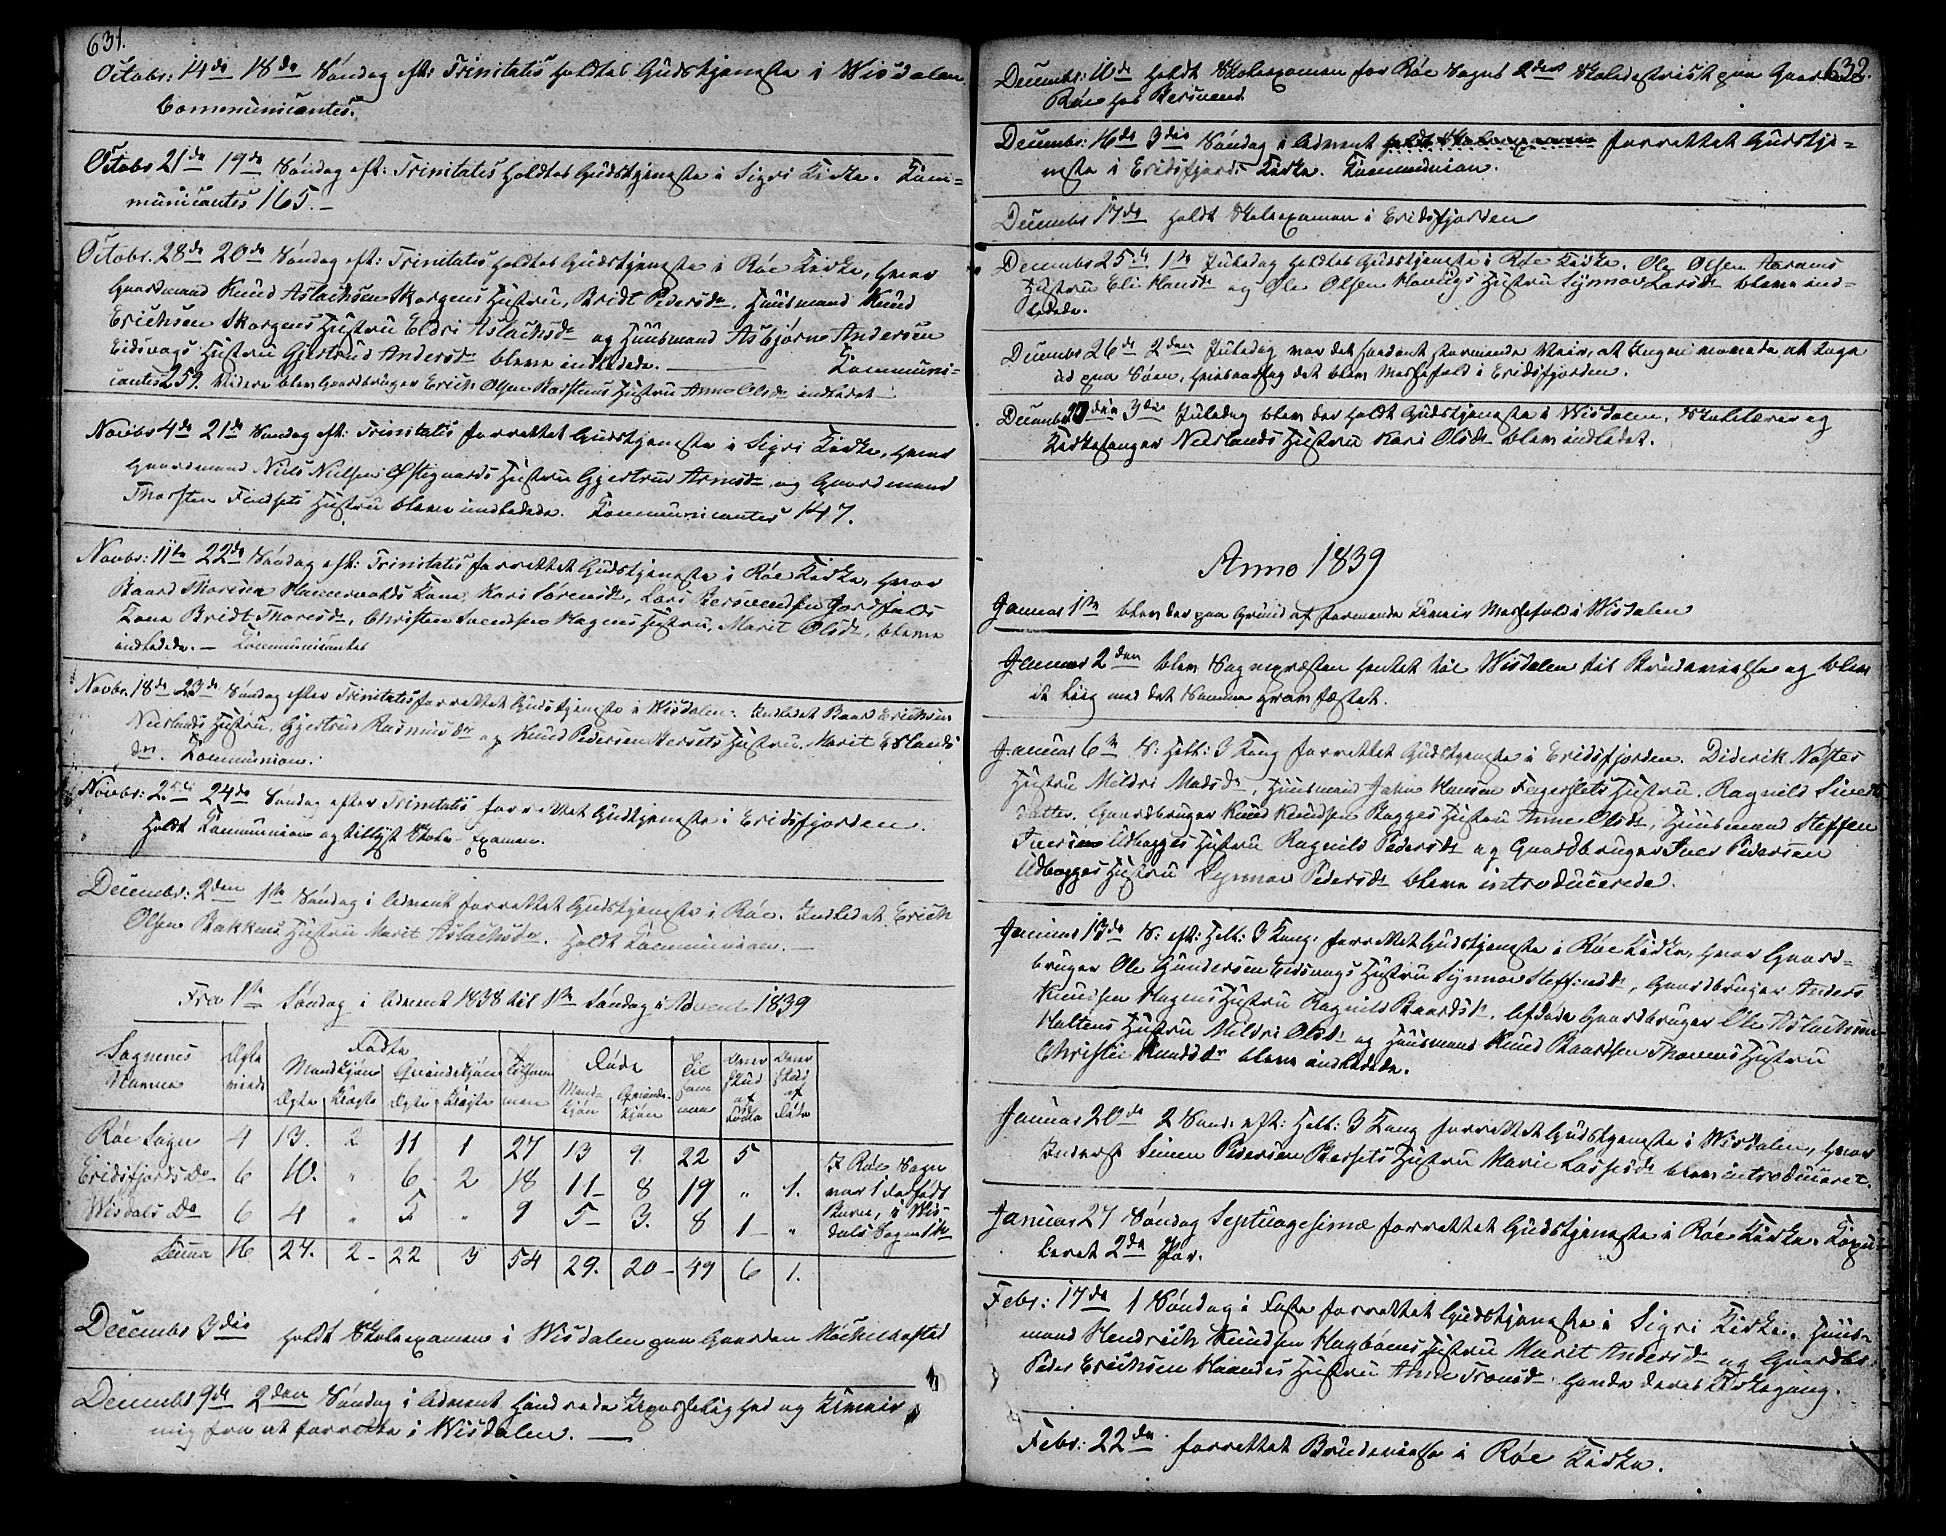 631.
Octobr: 14de 18de Søndag eft: Trinitatis holdtes Gudstjeneste i Wisdalen
Communicantes.
Octobr 21de 19de Søndag eft: Trinitatis holdtes Gudstjeneste i Sigri Kirke. Com=
municantes 165.–
Octobr. 28de 20de Søndag eft: Trinitatis holdtes Gudstjeneste i Røe Kirke, hvor
Gaardmand Knud Aslachsen Skorgens Hustru, Bridt Pedersdr, Huusmand Knud
Erichsen Skorgens Hustru Eldri Aslachsdr og Huusmand Asbjørn Andersen
Eidsvaags Hustru Gjertrud Andersdr bleve indledede. Communi=
cantes 259. Videre blev Gaardbruger Erich Olsen Hustru Anne Olsdr indledet
Novbr 4de 21de Søndag eft: Trinitatis forrettet Gudstjeneste i Sigri Kirke, hvor
Gaardmand Niels Nielsen Østigaards Hustru Gjertrud Arnesdr og Gaardmand
Thorsten Hustru bleve indledede. Communicantes 147.
Novbr: 11te 22de Søndag eft: Trinitatis forrettet Gudstjeneste i Røe Kirke, hvor
Baard Thoresen Kone Kari Sørensdr, Lars Kone Bridt Thoresdr, Christen Svendsen Hagens Hustru, Marit Olsdr, bleve
indledede. – Communicantes
Novbr. 18de 23de Søndag efter Trinitatis forrettet Gudstjeneste i Wisdalen. Indledet Baar Erichsen
Nerlands Hustru, Gjertrud Rasmusdr og Knud Pedersen Hustru. Marit
Communion.
Novbr: 25de 24de Søndag efter Trinitatis forrettet Gudstjeneste i Eridsfjorden.
Holdt Communion og tillyst Skole-examen.
Decembr: 2den 1ste Søndag i Advent forrettet Gudstjeneste i Røe. Indledet Erich
Olsen Bakkens Hustru Marit Aslachsdr. Holdt Communion. –
Fra 1ste Søndag i Advent 1838 til 1ste Søndag i Advent 1839
Sognenes Navne Ægte viede Fødte Mandkjøn Qvindekjøn Ægte Uægte Ægte Uægte Tilsammen Døde Mandkjøn Qvindekjøn Til sammen
Røe Sogn 4 13. 2 11 1 27 13 9. 22 5
Eridsfjords Do 6 10. " 6 2 18 11 8 19 " 1.
Wisdals Do 6 4 " 5 " 9 5 3. 8 1 "
I Røe Sogn
var 1 dødfødt
Barn, i Wis=
dals Sogn
Suma 16 27. 2 22 3 54 29. 20 49 6 1.
Decembr 3die holdt Skoleexamen i Wisdalen paa Gaarden
Decembr 9de 2den Søndag i Advent og Uveir
mig fra at forrette i Wisdalen. –
632.
Decembr: 10de holdt Skoleexamen for Røe Sogns 2det Skoledistrict paa Gaarden
Røe hos Bersvend
Decembr: 16de 3die Søndag i Advent holdt Skoleexamen forrettet Gudstje=
neste i Eridsfjords Kirke. Communion.
Decembr 17de holdt Skoleexamen i Eridsfjorden
Decembr 25de 1ste Juledag holdtes Gudstjeneste i Røe Kirke. Ole Olsen Aarams
Hustru Eli Hansdr og Ole Olsen Hustru Synnøv Larsdr bleve ind=
ledede.
Decembr 26de 2den Juledag var det saadant stormende Veir, at Ingen vovede at tage
ud paa Søen, hvisaarsag det blev Messefald i Eridsfjorden.
Decembr 27de 3die Juledag blev der holdt Gudstjeneste i Wisdalen. Skolelærer og
Kirkesanger Nerlands Hustru Kari Olsdr blev indledet.
Anno 1839
Januar 1ste blev der paa Grund af stormende Uveir Messefald i Wisdalen
Januar 2den blev Sognepræsten hentet til Wisdalen til Brudevielse og blev
et Liig med det Samme
Januar 6te S: Hell: 3 Kong forrettet Gudstjeneste i Eridsfjorden. Diderik Nøstes
Hustru Mildri Madsdr, Huusmand John Hansen Hustru, Ragnild Sivert
datter. Gaardbruger Knud Knudsen Bogges Hustru Anne Olsdr, Huusmand Steffen
Iversen Utbogges Hustru Ragnild Pedersdr og Gaardbruger Iver Pedersen
Utbogges Hustru Synnøv Pedersdr bleve introducerede.
Januar 13de S: eft: Hell: 3 Kong. forrettet Gudstjeneste i Røe Kirke, hvor Gaard=
bruger Ole Gundersen Eidsvaags Hustru Synnøv Steffensdr, Gaardbruger Anders
Knudsen Hagens Hustru Ragnild Baardsdr. Afdøde Gaardbruger Ole Aslachsen
Holtens Hustru Mildri Olsdr og Huusmand Knud Baardsen Hustru
Christie Knudsdr bleve indledede.
Januar 20de 2 Sønd. eft: Hell: 3 Kong forrettet Gudstjeneste i Wisdalen, hvor
Inderst Simen Pedersen Hustru Marie Lassesdr blev introduceret.
Januar 27 Søndag Septuagesimæ forrettet Gudstjeneste i Røe Kirke. Copu=
leret 2de Par.
Febr: 17de 1 Søndag i Faste forrettet Gudstjeneste i Sigri Kirke. Huus=
mand Hendrich Knudsen Hustru Marit Andersdr og Gaardbr:
Peder Erichsen Hustru Ane havde deres Kirkegang.
Febr: 22de forrettet Brudevielse i Røe Kirke.